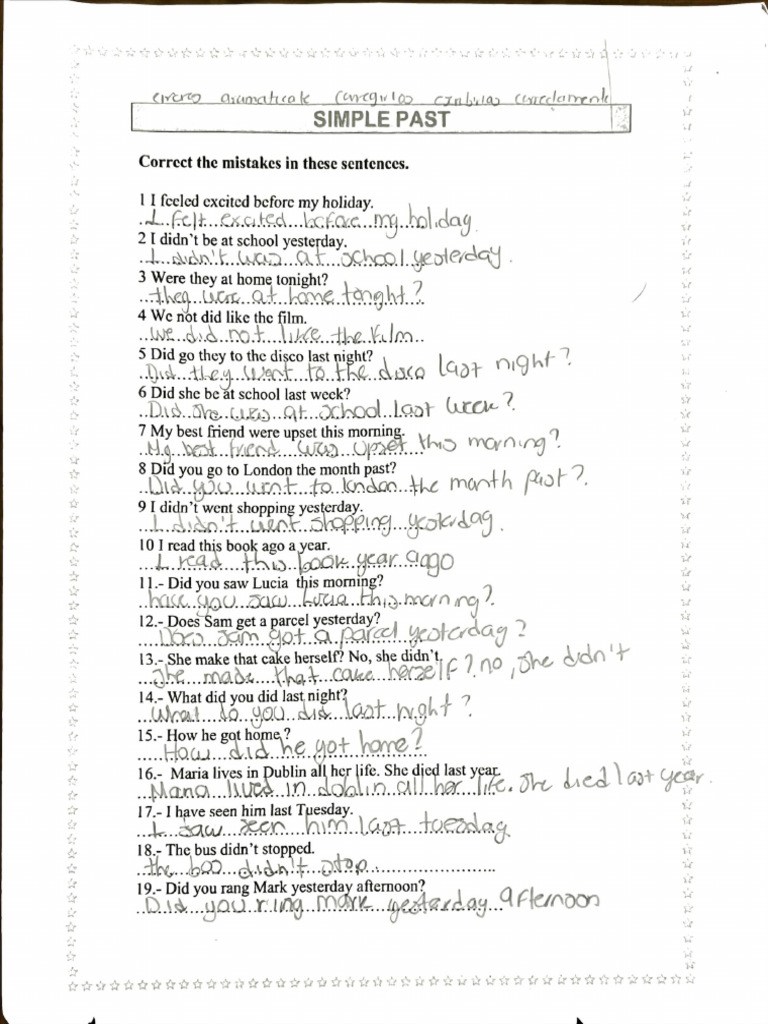 SIMPLE PAST
Correct the mistakes in these sentences.
1 I feeled excited before my holiday.
I felt excited before my holiday
2 I didn't be at school yesterday.
I didn't was at school yesterday.
3 Were they at home tonight?
they were at home tonght?
4 We not did like the film.
we did not like the film
5 Did go they to the disco last night?
Did they went to the disco last night?
6 Did she be at school last week?
Did she was at school last week?
7 My best friend were upset this morning.
My best friend was upset this morning?
8 Did you go to London the month past?
Did you went to london the month past?.
9 I didn't went shopping yesterday.
I didn't went shopping yesterday.
10 I read this book ago a year.
I read this book year aggo
11.- Did you saw Lucia this morning?
have you saw lucia this morning?.
12.- Does Sam get a parcel yesterday?
Does sam got a parcel yesterday?
13.- She make that cake herself? No, she didn't.
She made that cake herself? no, she didn't
14.- What did you did last night?
What do you did last night?
15.- How he got home ?
How did he got home?
16.- Maria lives in Dublin all her life. She died last year.
Maria lived in doblin all her life. she died last year.
17.- I have seen him last Tuesday.
I saw seen him last tuesday
18.- The bus didn't stopped.
the boo didn't stop
19.- Did you rang Mark yesterday afternoon?
Did you ring mark yesterday afternoon